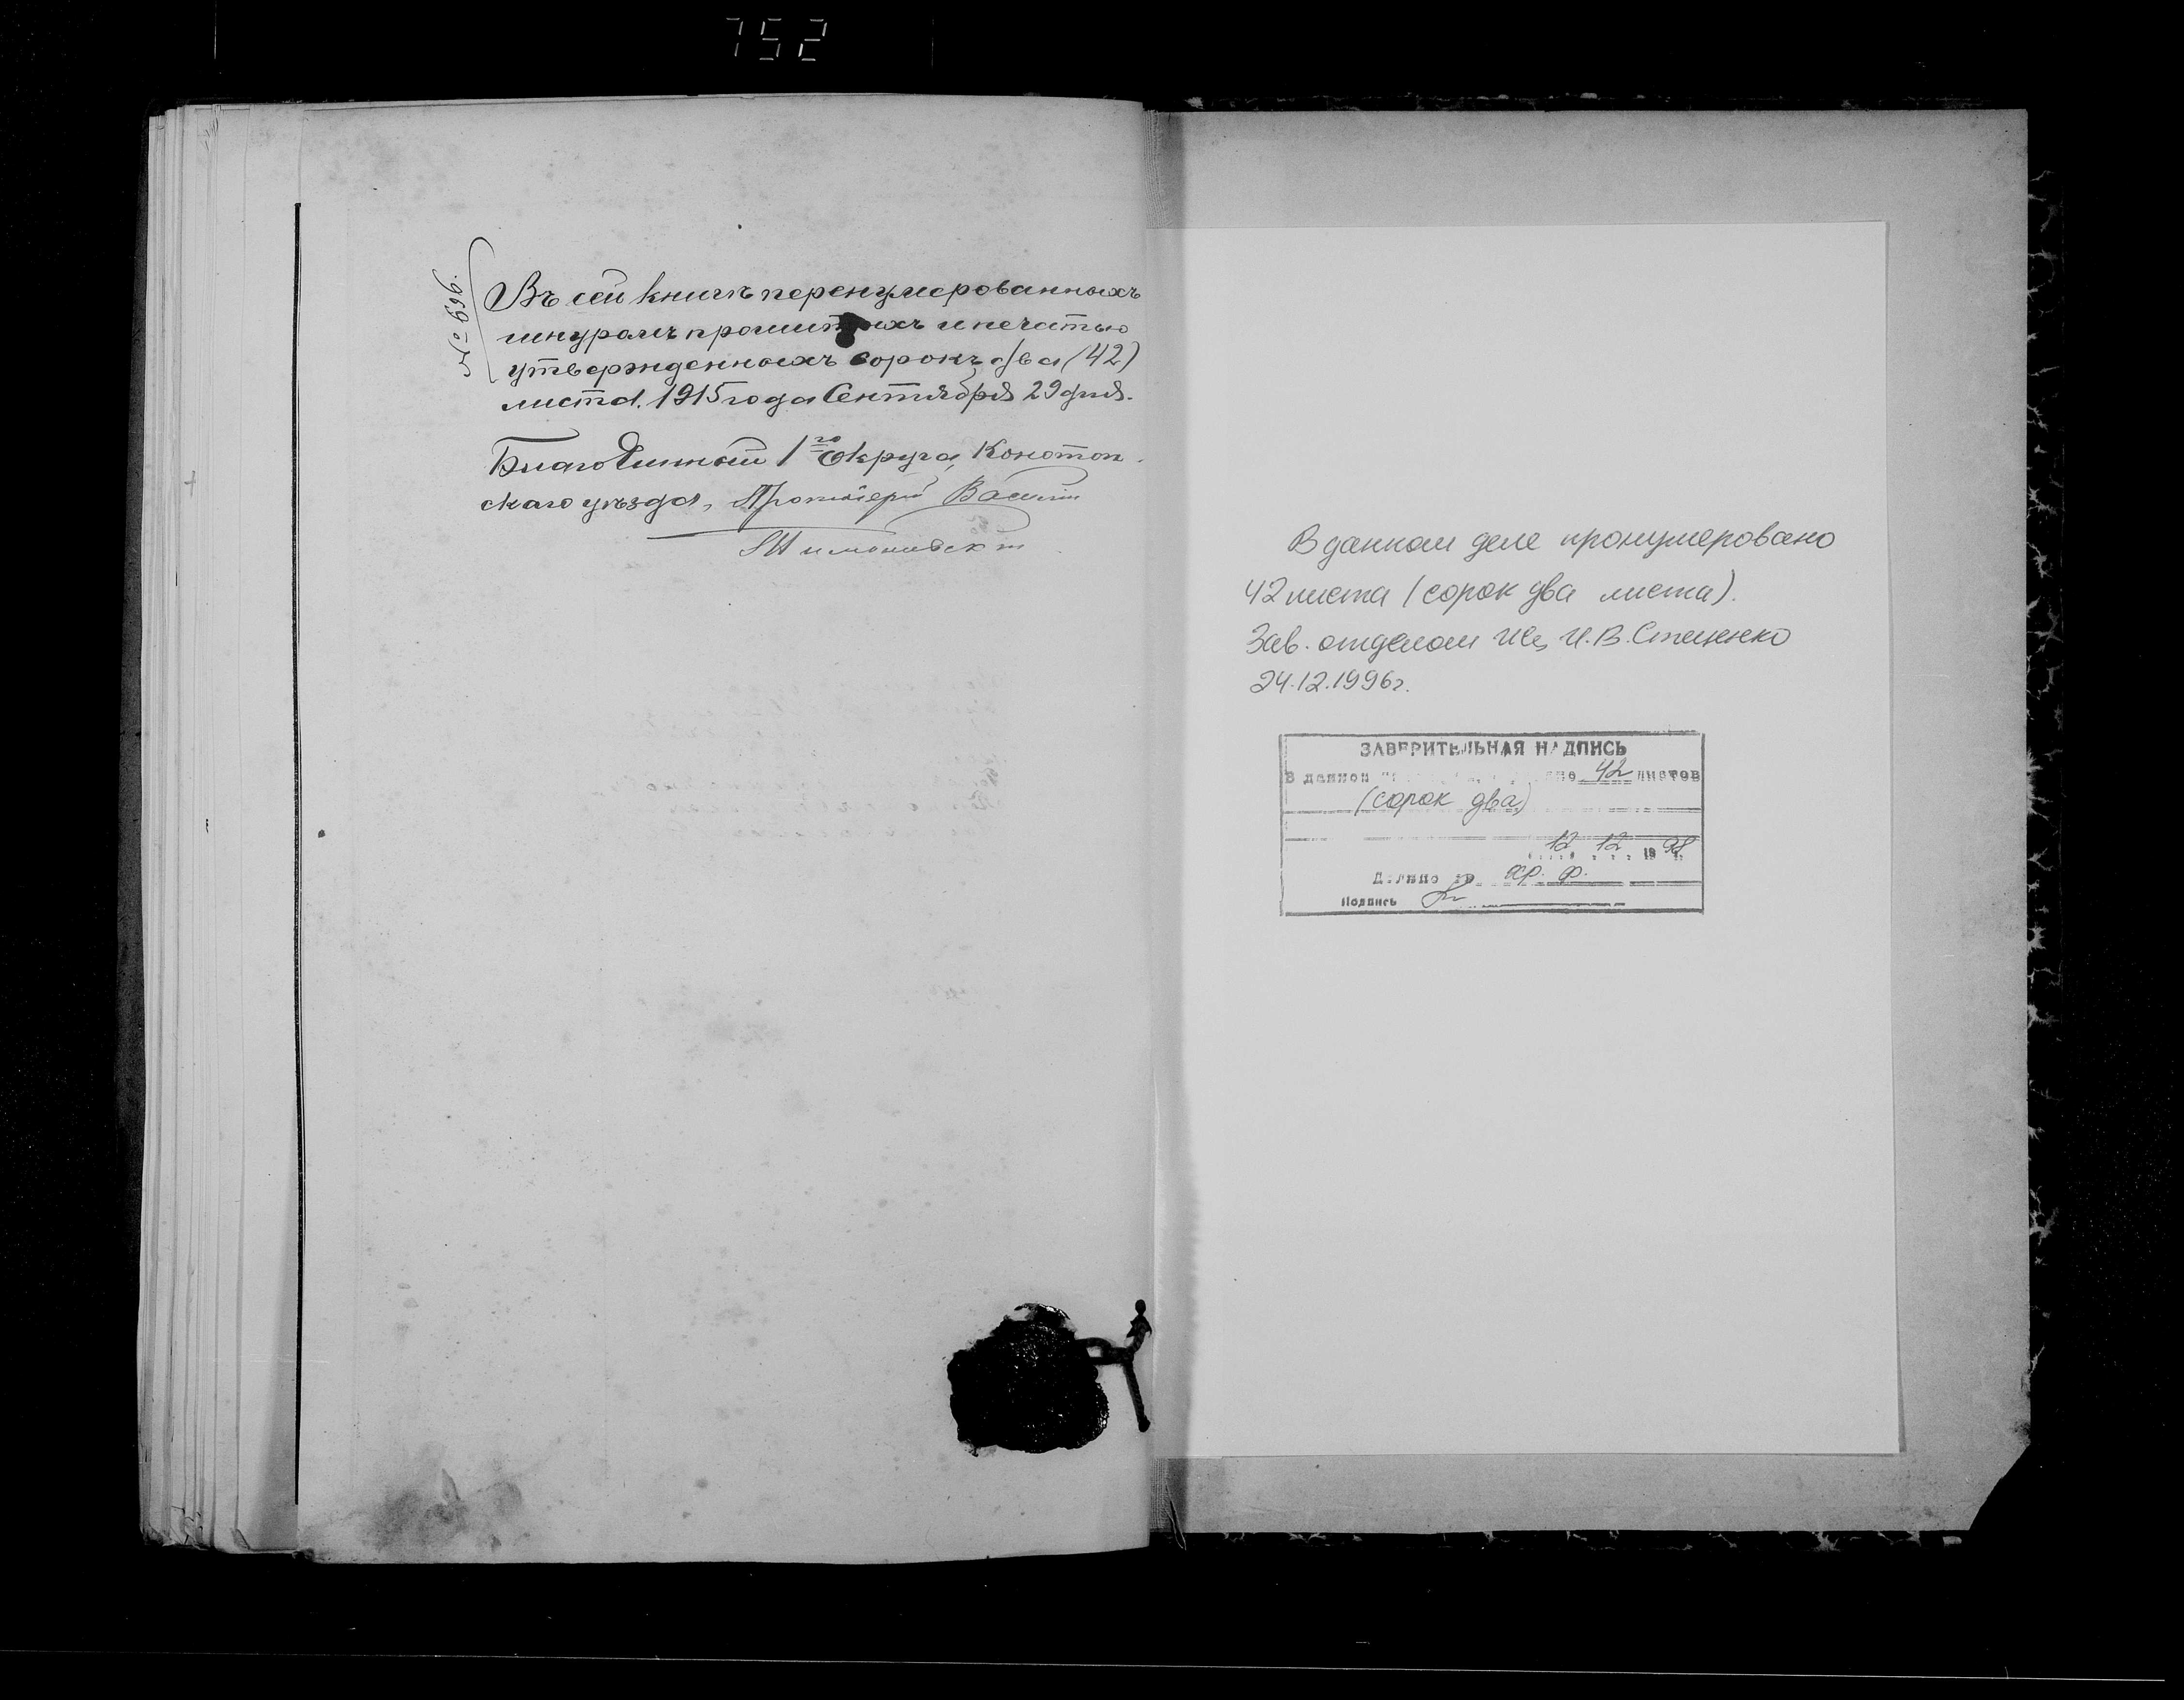 752
№ 699.
Въ сей книгѣ перенумерованныхъ
шнуромъ прошитыхъ и печатью
утвержденныхъ сорокъ два (42)
листа. 1915 года Сентября 29 дня.
Благочинный 1го Округа, Конотоп-
скаго уѣзда, Протоіерей Василій
В данном деле пронумеровано
42 листа (сорок два листа).
Зав. отделом И.В. Стеценко
24.12.1996г.
ЗАВЕРИТЕЛЬНАЯ НАДПИСЬ
В данном 42 листов
(сорок два)
12 12 1998
Должность хр. ф.
Подпись